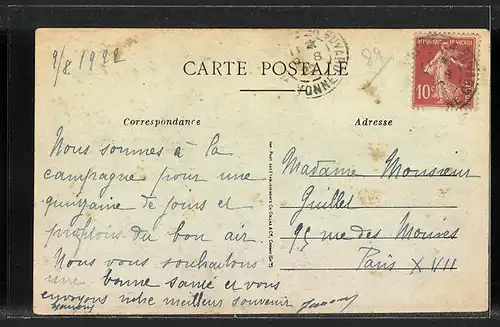 9/8. 1922
CARTE POSTALE
REPUBLIQUE FRANÇAISE
10c
YONNE
Correspondance
Adresse
Nous sommes à la
campagne pour une
quinzaine de jours et
profitons du bon air.
Nous vous souhaitons
une bonne santé et vous
envoyons notre meilleur souvenir
Madame Monsieur
Guillet
95 rue des Moines
Paris XVII